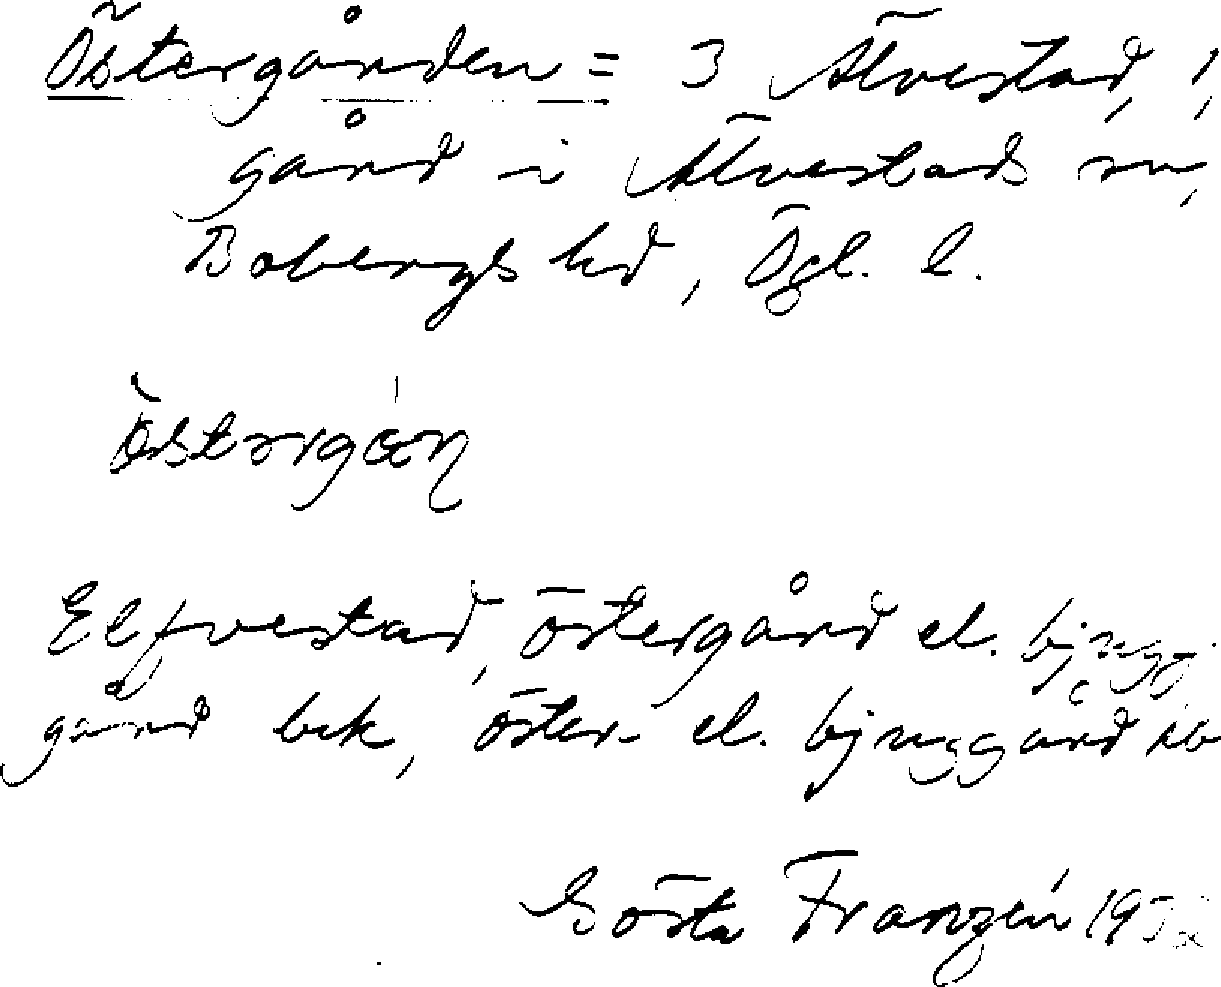 Östergården = 3 Älvestad, 1,
gård i Älvestads sn,
Bobergs hd, Ögl. l.
Elfvestad, östergård el. bjugg-
gård bek, öster- el. bjuggård ib
Gösta Franzén 19